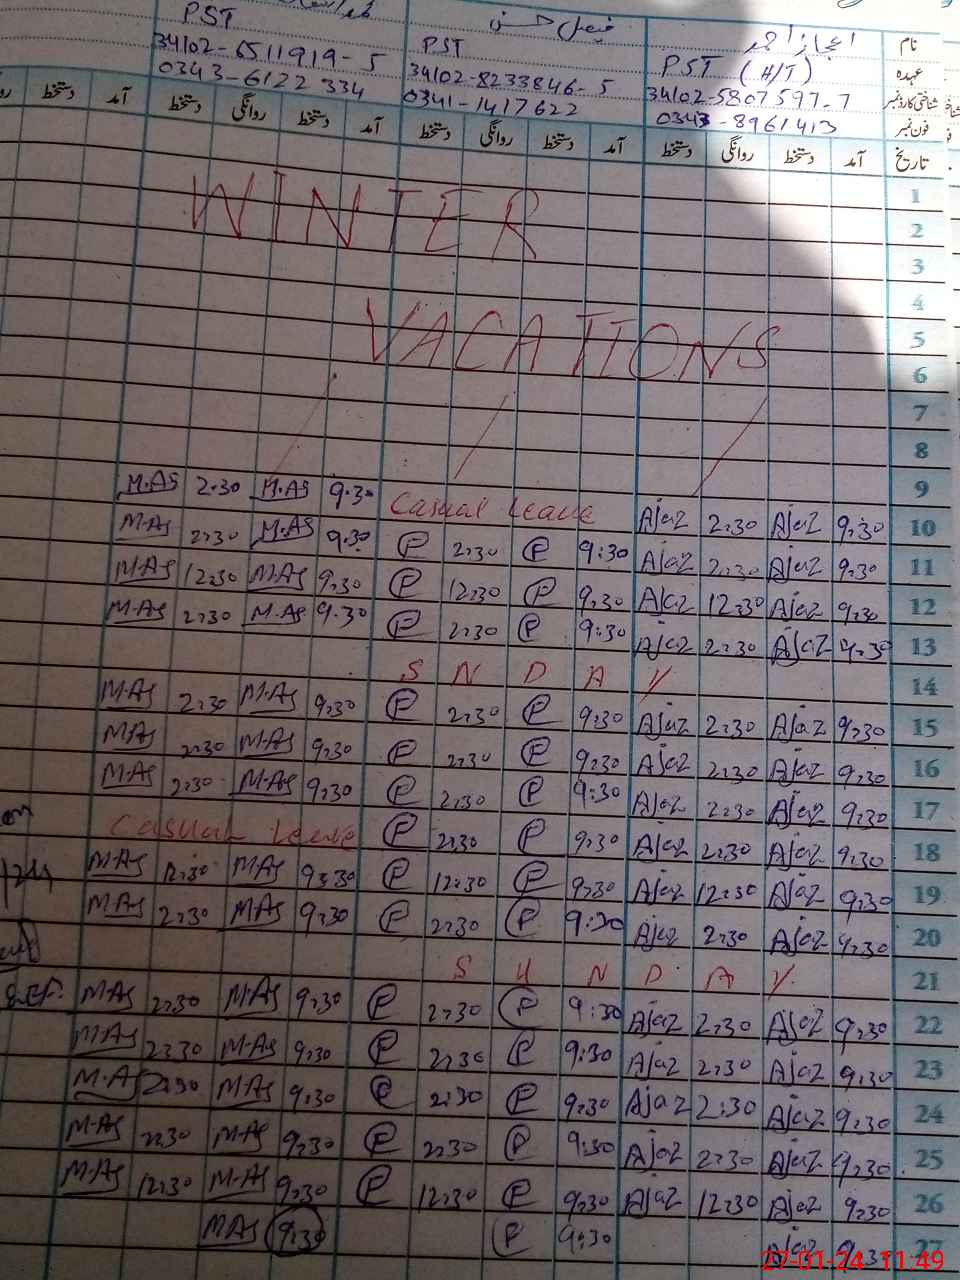 نام اعجاز احمد فیصل حسن
عہدہ PST (H/T) PST PST
شناختی کارڈ نمبر 34102-5807597-7 34102-8233846-5 34102-6511919-5
فون نمبر 0343-8961413 0341-1417622 0343-6122334
تاریخ آمد دستخط روانگی دستخط آمد دستخط روانگی دستخط آمد دستخط روانگی دستخط آمد دستخط
1
WINTER 2
3
4
VACATIONS 5
6
7
8
9
M.As 2.30 M.As 9.30 Casual Leave Ajaz 2:30 Ajaz 9:30 10
M.As 2:30 M.As 9:30 P 2:30 P 9:30 Ajaz 2:30 Ajaz 9:30 11
M.As 12:30 M.As 9:30 P 12:30 P 9:30 Ajaz 12:30 Ajaz 9:30 12
M.As 2:30 M.As 9.30 P 2:30 P 9:30 Ajaz 2:30 Ajaz 9:30 13
S N D A Y 14
M.As 2:30 M.As 9:30 P 2:30 P 9:30 Ajaz 2:30 Ajaz 9:30 15
M.As 2:30 M.As 9:30 P 2:30 P 9:30 Ajaz 2:30 Ajaz 9:30 16
M.As 2:30 M.As 9:30 P 2:30 P 9:30 Ajaz 2:30 Ajaz 9:30 17
Casual Leave P 2:30 P 9:30 Ajaz 2:30 Ajaz 9:30 18
M.As 12:30 M.As 9:30 P 12:30 P 9:30 Ajaz 12:30 Ajaz 9:30 19
M.As 2:30 M.As 9:30 P 2:30 P 9:30 Ajaz 2:30 Ajaz 9:30 20
S U N D A Y 21
M.As 2:30 M.As 9:30 P 2:30 P 9:30 Ajaz 2:30 Ajaz 9:30 22
M.As 2:30 M.As 9:30 P 2:30 P 9:30 Ajaz 2:30 Ajaz 9:30 23
M.As 2:30 M.As 9:30 P 2:30 P 9:30 Ajaz 2:30 Ajaz 9:30 24
M.As 2:30 M.As 9:30 P 2:30 P 9:30 Ajaz 2:30 Ajaz 9:30 25
M.As 12:30 M.As 9:30 P 12:30 P 9:30 Ajaz 12:30 Ajaz 9:30 26
M.As 9:30 P 9:30 Ajaz 9:30 27
27-01-24 11:49